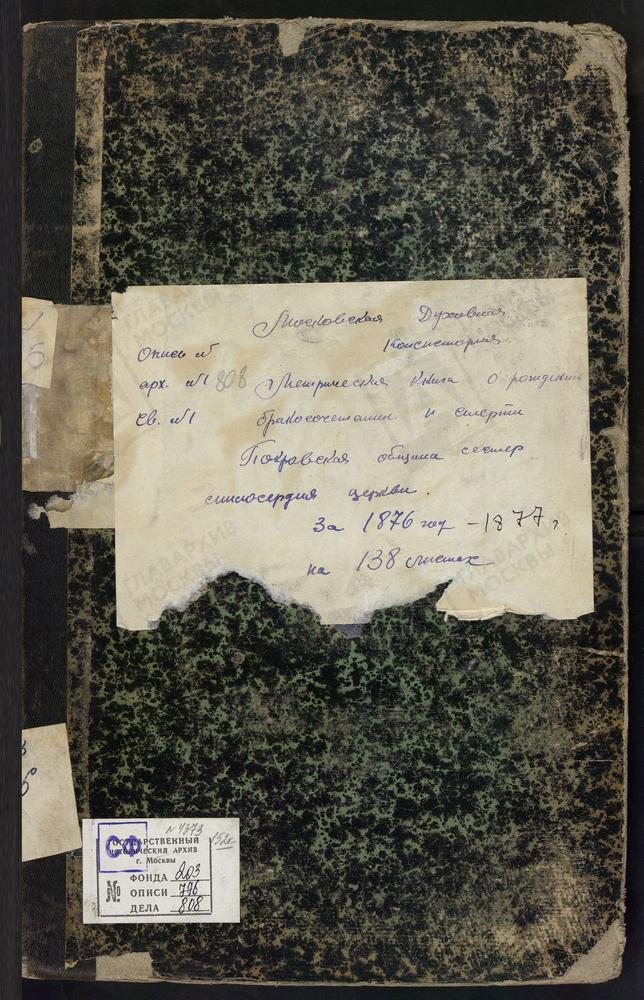 Московская Духовная
Консистория
Опись №
арх. № 808 Метрическая книга о рождении
Св. № бракосочетании и смерти
Покровская община сестер
милосердия церкви.
За 1876 год - 1877 г
на 138 листах
№ 4873
ГОСУДАРСТВЕННЫЙ
ИСТОРИЧЕСКИЙ АРХИВ
г. Москвы
№
ФОНДА 203
ОПИСИ 776
ДЕЛА 808
ГЛАВАРХИВ
МОСКВЫ